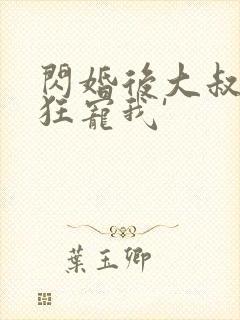 閃婚後大叔
狂寵我'
葉玉卿